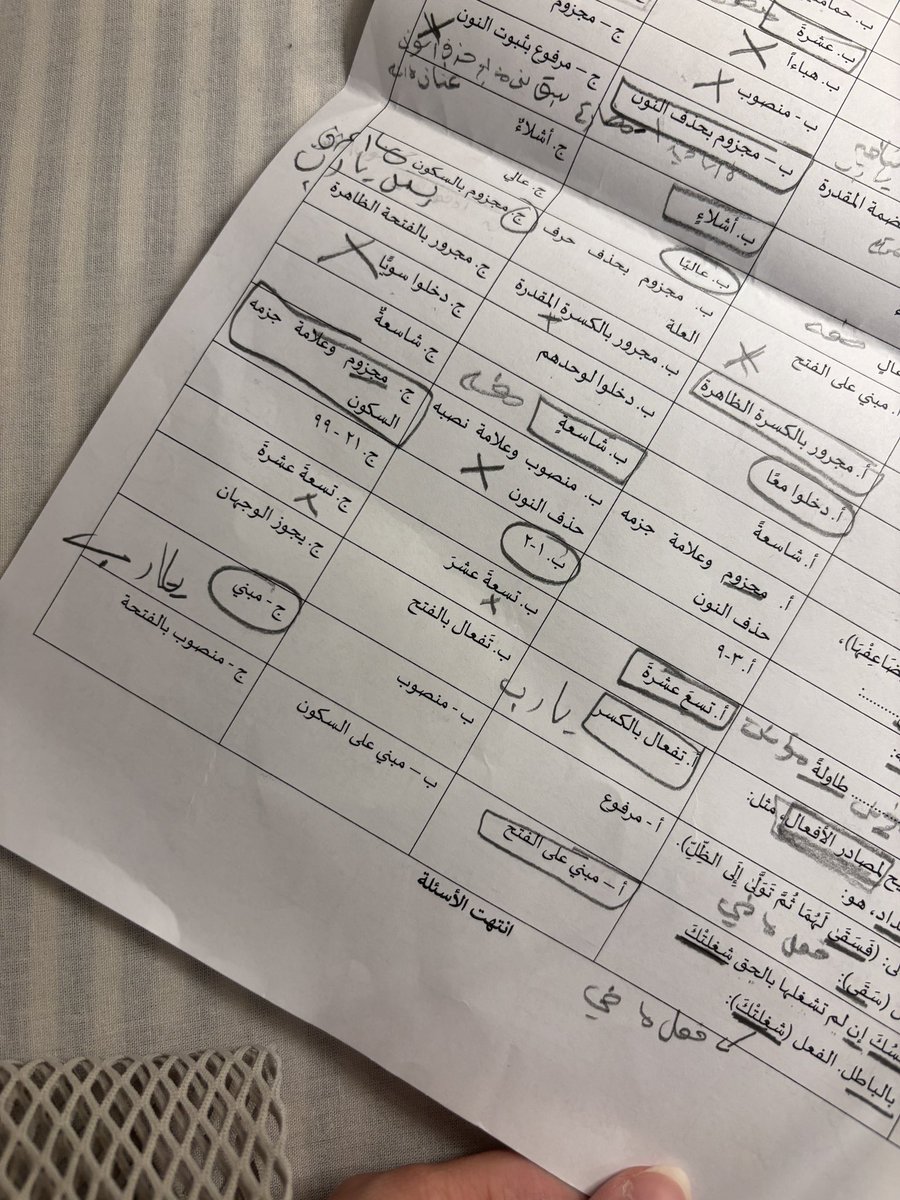 ب. حمامي
ب. عشرةَ
ج – مجزوم
ب. هباءاً
ج – مرفوع بثبوت النون
ب – منصوب
ب – مجزوم بحذف النون
ج. أشلاءٌ
ضمة المقدرة
ب. أشلاءٍ
ج. عالي
ب. عاليًا
عالي
ج. مجزوم بالسكون
ب. مجزوم بحذف حرف العلة
أ. مبني على الفتح
ج. مجرور بالفتحة الظاهرة
ب. مجرور بالكسرة المقدرة
أ. مجرور بالكسرة الظاهرة
ج. دخلوا سويًّا
ب. دخلوا لوحدهم
أ. دخلوا معًا
ج. شاسعةٌ
ب. شاسعةٍ
أ. شاسعةً
ج. مجزوم وعلامة جزمه
السكون
ب. منصوب وعلامة نصبه
حذف النون
أ. مجزوم وعلامة جزمه
حذف النون
ج. ٢١-٩٩
ب. ١-٢
أ. ٣-٩
ج. تسعةَ عشرةَ
ب. تسعةَ عشرَ
أ. تسعَ عشرةَ
طاولةً
ج. يجوز الوجهان
ب. تَفعال بالفتح
أ. تِفعال بالكسر
لمصادر الأفعال، مثل:
يا رب
ج - مبني
ب - منصوب
أ - مرفوع
يا رب
ج - منصوب بالفتحة
ب – مبني على السكون
أ – مبني على الفتح
(فَسَقَىٰ لَهُمَا ثُمَّ تَوَلَّىٰ إِلَى الظِّلِّ).
(سَقَى):
فعل ماضي
إن لم تشغلها بالحق شغلتْكَ
بالباطل. الفعل (شغلتْكَ):
فعل ماضي
انتهت الأسئلة